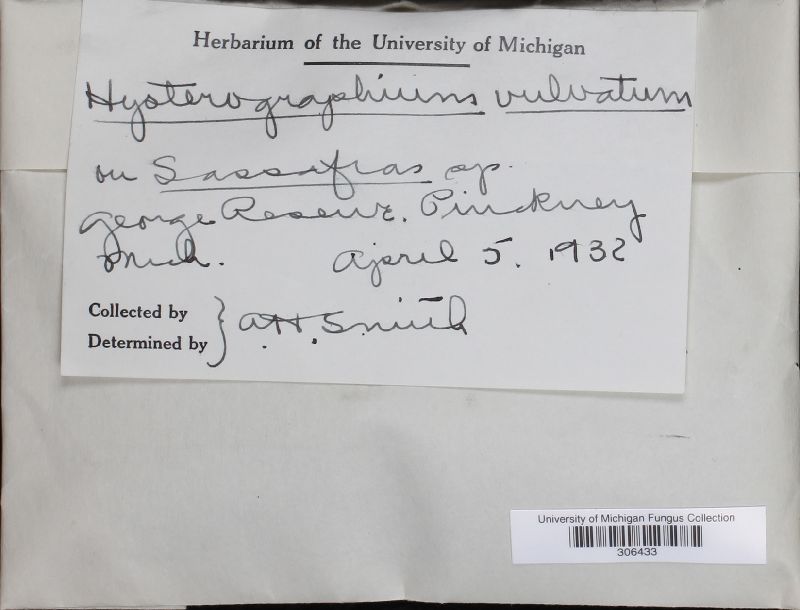 Herbarium of the University of Michigan
Hysterographium vulvatum
on Sassafras sp.
George Reserve. Pinckney
Mich. April 5. 1932
Collected by
Determined by } A.H. Smith
University of Michigan Fungus Collection
306433